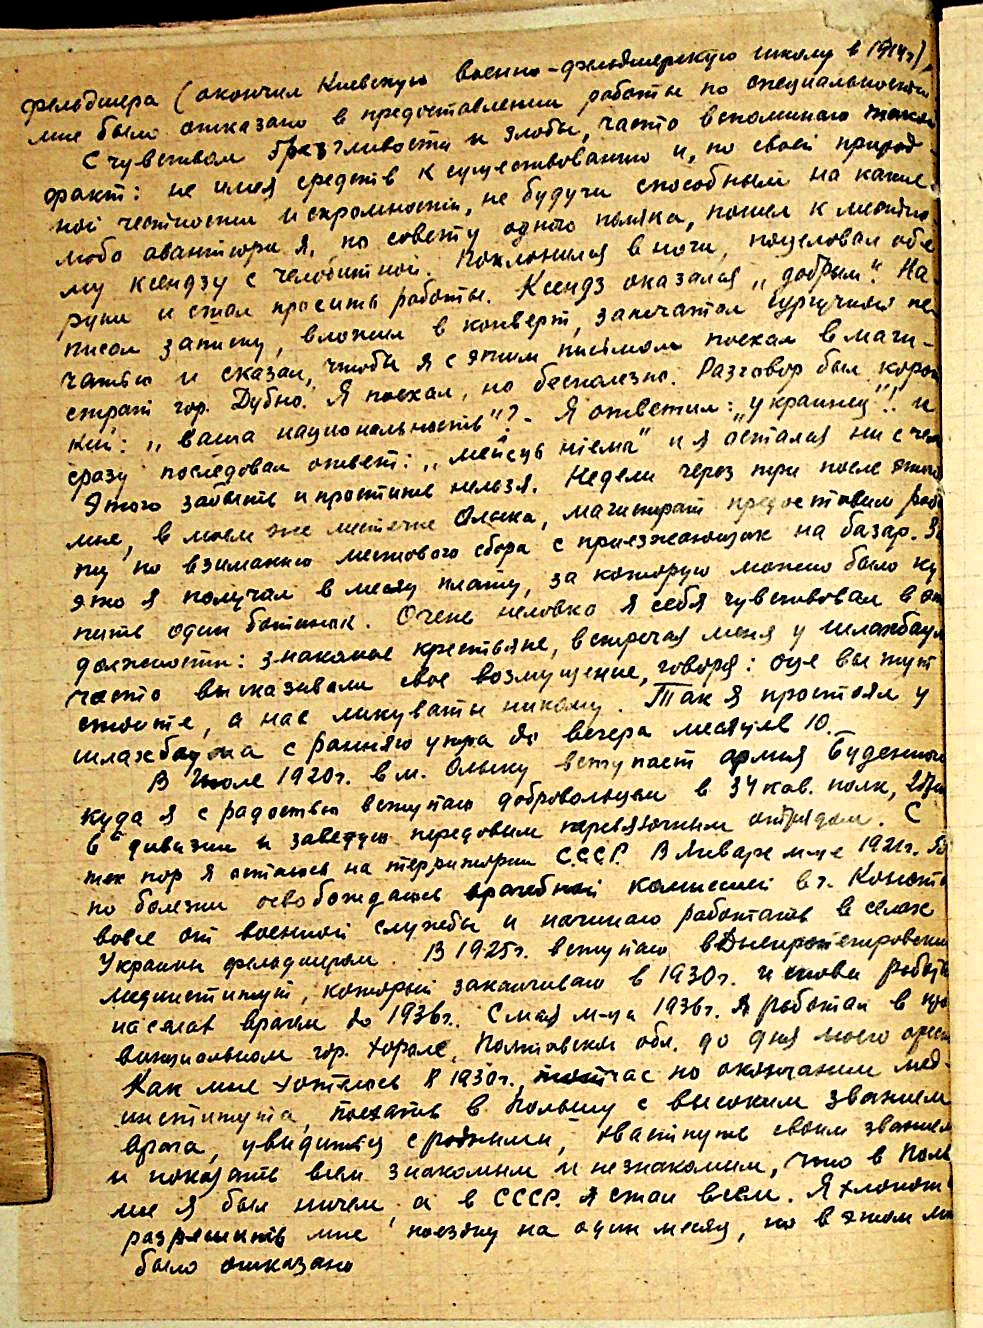 фельдшера (окончил Киевскую военно-фельдшерскую школу в 1914г),
мне было отказано в предоставлении работы по специальности
С чувством брезгливости и злобы, часто вспоминаю такой
факт: не имея средств к существованию и, по своей природ-
ной честности и скромности, не будучи способным на какие
либо авантюры я, по совету одного поляка, пошел к местно
му ксендзу с челобитной. Поклонился в ноги, поцеловал обе
руки и стал просить работы. Ксендз оказался „добрым“. На
писал записку, вложил в конверт, запечатал сургучной пе
чатью и сказал, чтобы я с этим письмом поехал в маги-
страт гор. Дубно. Я поехал, но бесполезно. Разговор был корот
кий: „ваша национальность“? - Я ответил: „украинец“! и
сразу последовал ответ: „мейсць ніема“ и я остался ни с чем
Этого забыть и простить нельзя. Недели через три после этого
мне, в моем же местечке Олыка, магистрат предоставил рабо
ту по взиманию местового сбора с приезжающих на базар. За
это я получал в месяц плату, за которую можно было ку
пить один ботинок. Очень неловко я себя чувствовал в эт
должности: знакомые крестьяне, встречая меня у шлахбаум
часто высказывали свое возмущение, говоря: оце вы тут
стоите, а нас ликуваты никому. Так я простоял у
шлахбаума с раннего утра до вечера месяцев 10.
В Июле 1920г. в м. Олыку вступает армия Буденного
куда я с радостью вступаю добровольцем в 34 кав. полк,
6й дивизии и заведую передовым перевязочным отрядом. С
тех пор я остаюсь на территории СССР. В Январе м-це 1921г. я
по болезни освобождаюсь врачебной комиссией в г. Конотоп
вовсе от военной службы и начинаю работать в селах
Украины фельдшером. В 1925г. вступаю в Днепропетровский
мединститут, который заканчиваю в 1930г. и снова работаю
на селах врачом до 1936г. С мая м-ца 1936г. я работал в про
винциальном гор. Хороле, Полтавской обл. до дня моего арест
Как мне хотелось в 1930г., тотчас по окончании мед-
института, поехать в Польшу с высоким званием
врача, увидиться с родными, хвастнуть своим званием
и показать всем знакомым и незнакомым, что в Поль
ше я был ничем а в СССР. я стал всем. Я хлопотал
разрешить мне поездку на один месяц, но в этом мне
было отказано